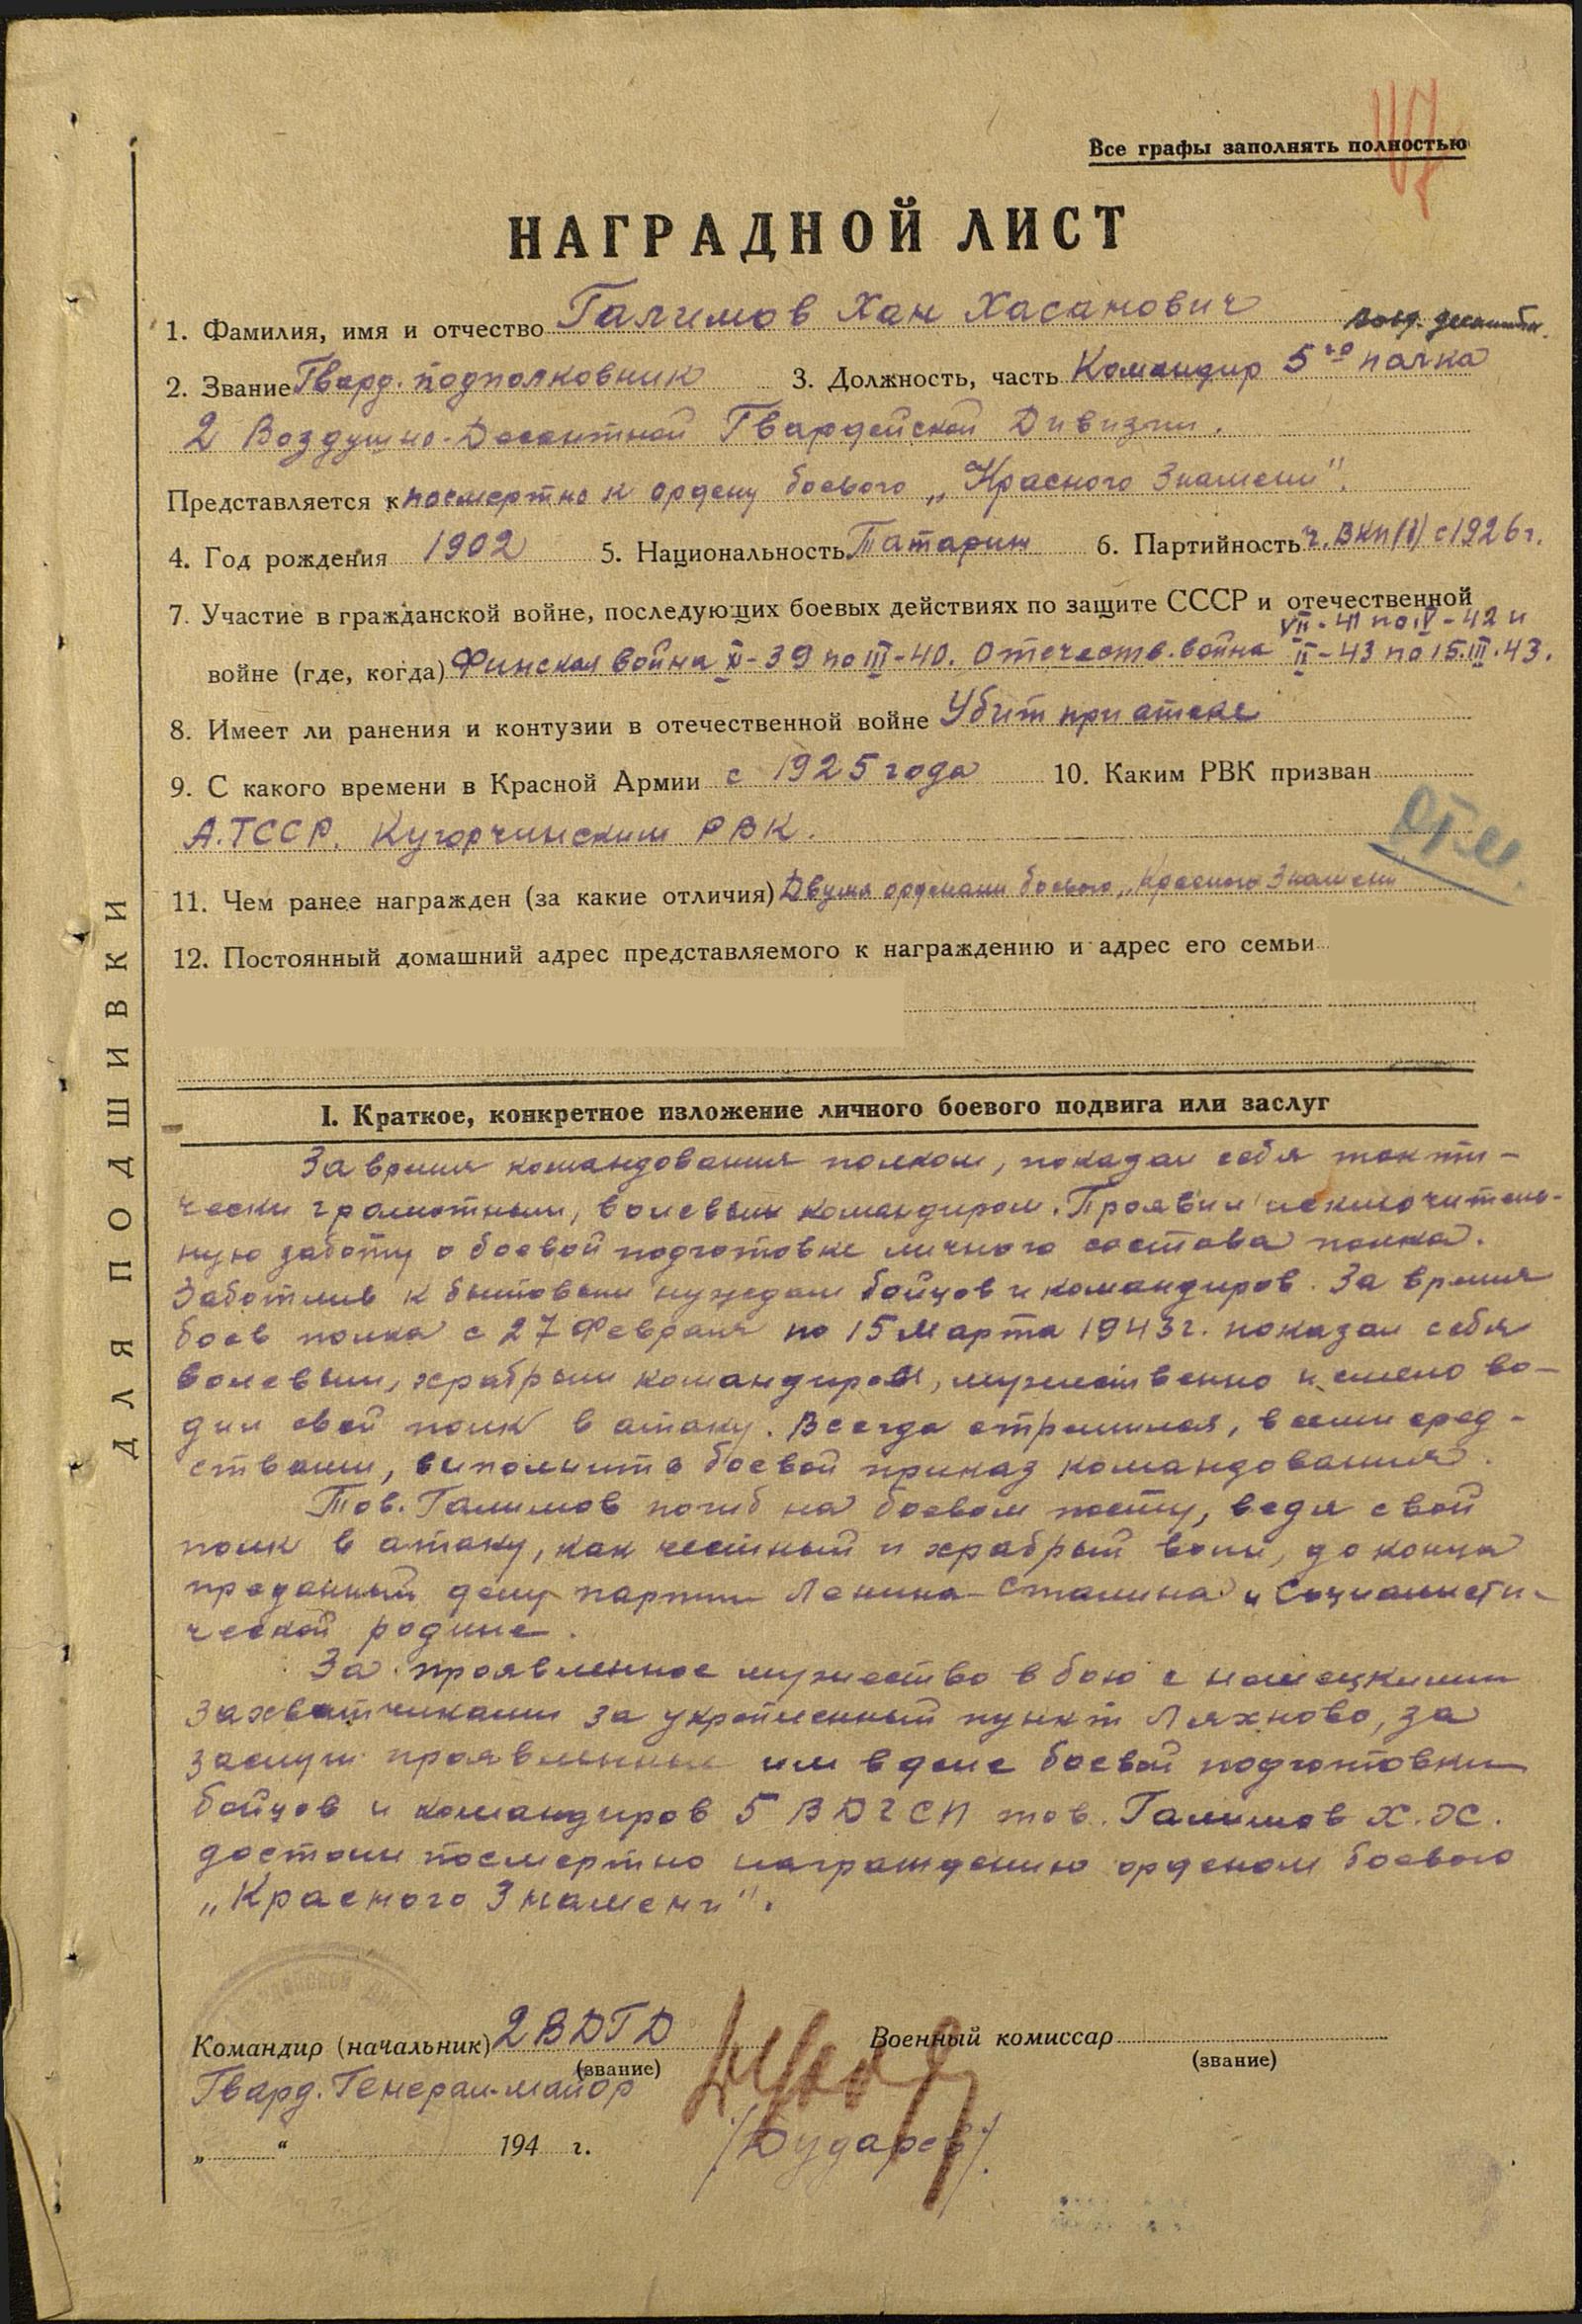 Все графы заполнять полностью
НАГРАДНОЙ ЛИСТ
1. Фамилия, имя и отчество Галимов Хан Хасанович
возд. десантн.
2. Звание Гвард. подполковник 3. Должность, часть Командир 5го полка
2 Воздушно-Десантной Гвардейской Дивизии.
Представляется к посмертно к ордену боевого „Красного Знамени".
4. Год рождения 1902 5. Национальность Татарин 6. Партийность ч. ВКП(б) с 1926 г.
7. Участие в гражданской войне, последующих боевых действиях по защите СССР и отечественной
VII-41 по IV-42 и
войне (где, когда) Финская война XI-39 по III-40. Отечеств. война II-43 по 15.III.43.
8. Имеет ли ранения и контузии в отечественной войне Убит при атаке
9. С какого времени в Красной Армии с 1925 года 10. Каким РВК призван
А.ТССР. Кугарчинским РВК.
11. Чем ранее награжден (за какие отличия) Двумя орденами боевого „Красного Знамени
12. Постоянный домашний адрес представляемого к награждению и адрес его семьи
ДЛЯ ПОДШИВКИ
I. Краткое, конкретное изложение личного боевого подвига или заслуг
За время командования полком, показал себя такти-
чески грамотным, волевым командиром. Проявил исключитель-
ную заботу о боевой подготовке личного состава полка.
Заботлив к бытовым нуждам бойцов и командиров. За время
боев полка с 27 Февраля по 15 Марта 1943 г. показал себя
волевым, храбрым командиром, мужественно и смело во-
дил свой полк в атаку. Всегда стремился, всеми сред-
ствами, выполнить боевой приказ командования.
Тов. Галимов погиб на боевом посту, ведя свой
полк в атаку, как честный и храбрый воин, до конца
преданный делу партии Ленина-Сталина и Социалисти-
ческой родине.
За проявленное мужество в бою с немецкими
захватчиками за укрепленный пункт Ляхново, за
заслуги проявленные им в деле боевой подготовки
бойцов и командиров 5 ВДГСП тов. Галимов Х.Х.
достоин посмертно награждению орденом боевого
„Красного Знамени".
Командир (начальник) 2 ВДГД Военный комиссар
(звание) (звание)
Гвард. Генерал-майор
„ “ 194 г. /Дударев/.